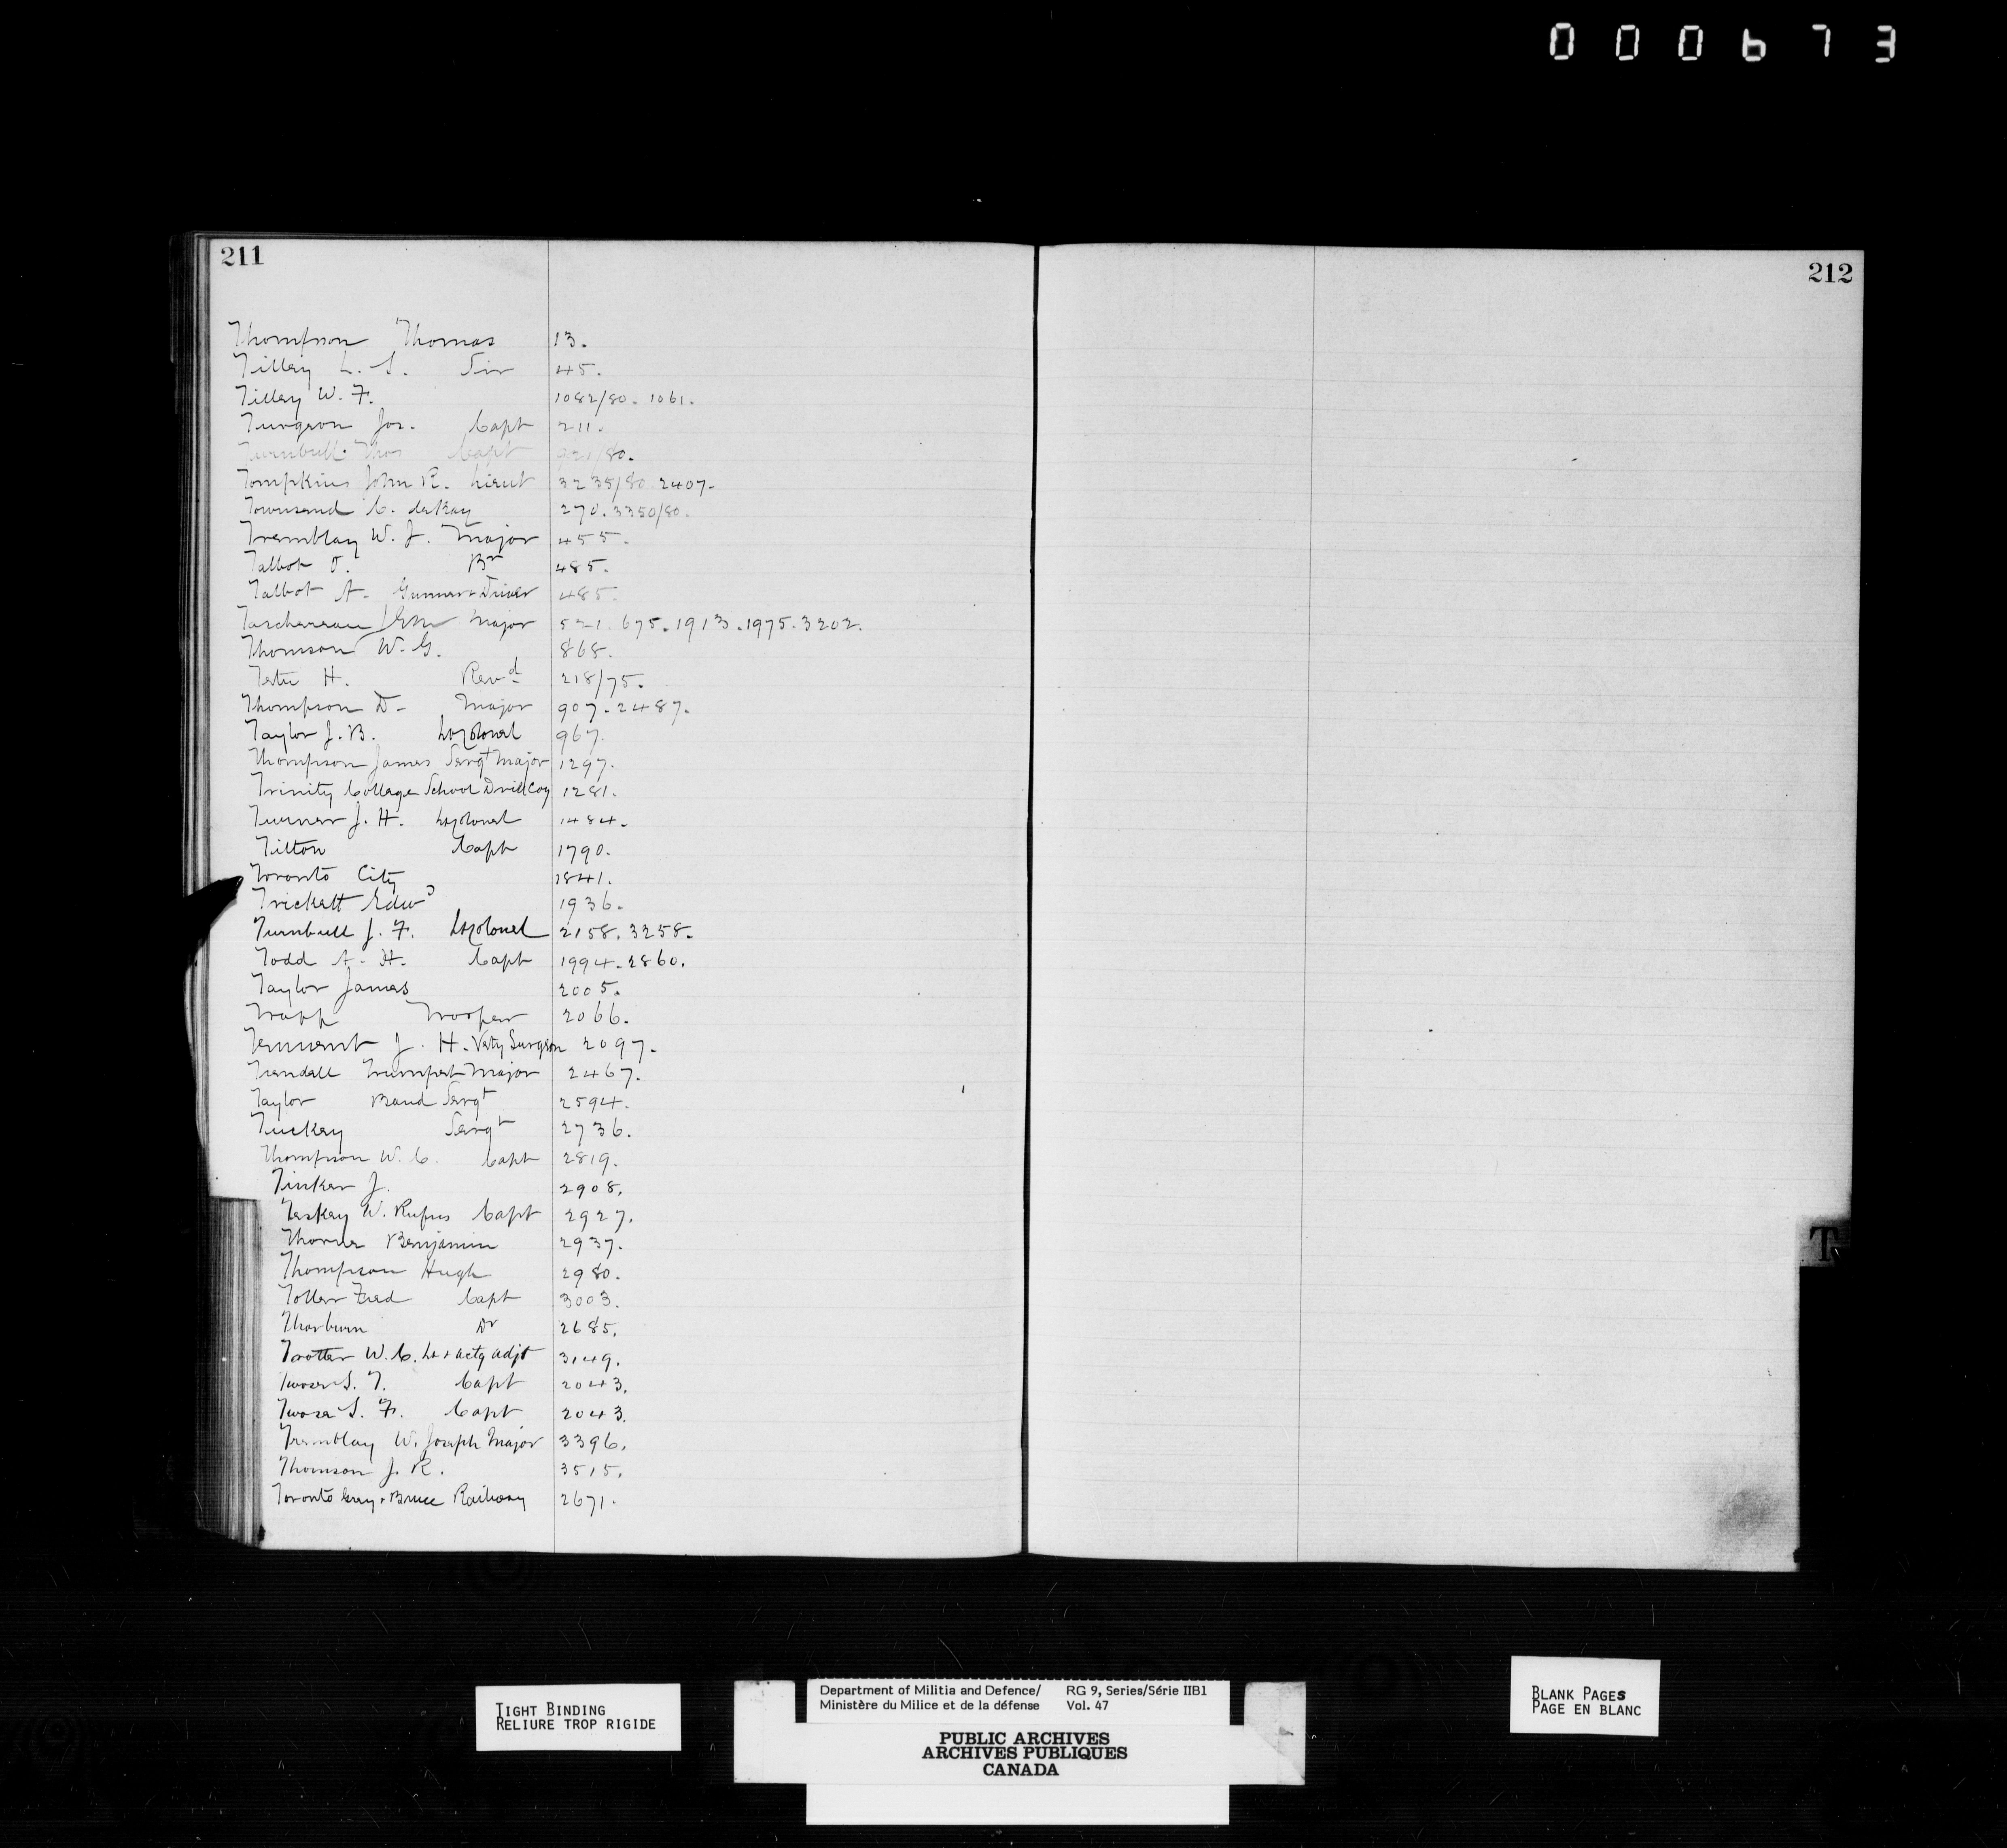 000673
211
212
Thompson Thomas 13.
Tilley L. S. Sir 45.
Tilley W. F. 1082/80. 1061.
Turgeon Jos. Capt 211.
Turnbull Thos Capt 921/80.
Tompkins John R. Lieut 3235/80. 2407.
Townsend C. deKay 270. 3350/80.
Tremblay W. J. Major 455.
Talbot J. Br 485.
Talbot A. Gunner & Driver 485.
Taschereau Major 521. 675. 1913. 1975. 3202.
Thomson W. G. 868.
Tetu H. Revd 218/75.
Thompson D. Major 907. 2487.
Taylor J. B. Lt Colonel 967.
Thompson James Sergt Major 1297.
Trinity College School Drill Coy 1281.
Turner J. H. Lt Colonel 1484.
Tilton Capt 1790.
Toronto City 1841.
Trickett Edwd 1936.
Turnbull J. F. Lt Colonel 2158. 3258.
Todd A. H. Capt 1994. 2860.
Taylor James 2005.
Trapp Trooper 2066.
Tennent J. H. Vety Surgeon 2097.
Trendell Trumpet Major 2467.
Taylor Band Sergt 2594.
Tuckey Sergt 2736.
Thompson W. C. Capt 2819.
Tinker J. 2908.
Teskey W. Rufus Capt 2927.
Thorne Benjamin 2937.
Thompson Hugh 2980.
Toller Fred Capt 3003.
Thorburn Dr 2685.
Trotter W. C. Lt & actg adjt 3149.
Twoser S. T. Capt 2043.
Twose S. F. Capt 2043.
Tremblay W. Joseph Major 3396.
Thomson J. R. 3515.
Toronto Grey & Bruce Railway 2671.
T
TIGHT BINDING
RELIURE TROP RIGIDE
Department of Militia and Defence/ RG 9, Series/Série IIB1
Ministère du Milice et de la défense Vol. 47
PUBLIC ARCHIVES
ARCHIVES PUBLIQUES
CANADA
BLANK PAGES
PAGE EN BLANC